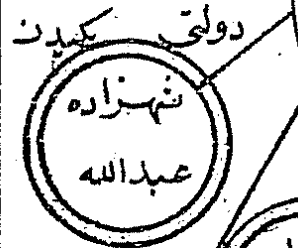 دولتی یکیدن
شهزاده
عبدالله